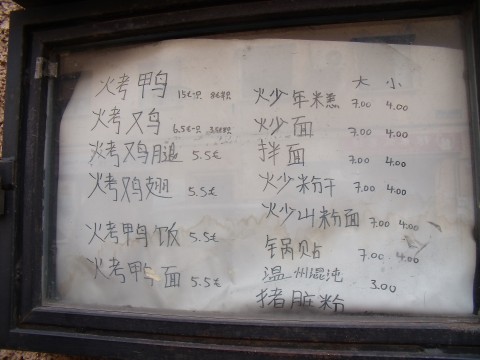 烤鸭 15€一只 8€半只
烤鸡 6.5€一只 3.5€半只
烤鸡腿 5.5€
烤鸡翅 5.5€
烤鸭饭 5.5€
烤鸭面 5.5€
大 小
炒年糕 7.00 4.00
炒面 7.00 4.00
拌面 7.00 4.00
炒粉干 7.00 4.00
炒山粉面 7.00 4.00
锅贴 7.00 4.00
温州馄沌 3.00
猪脏粉